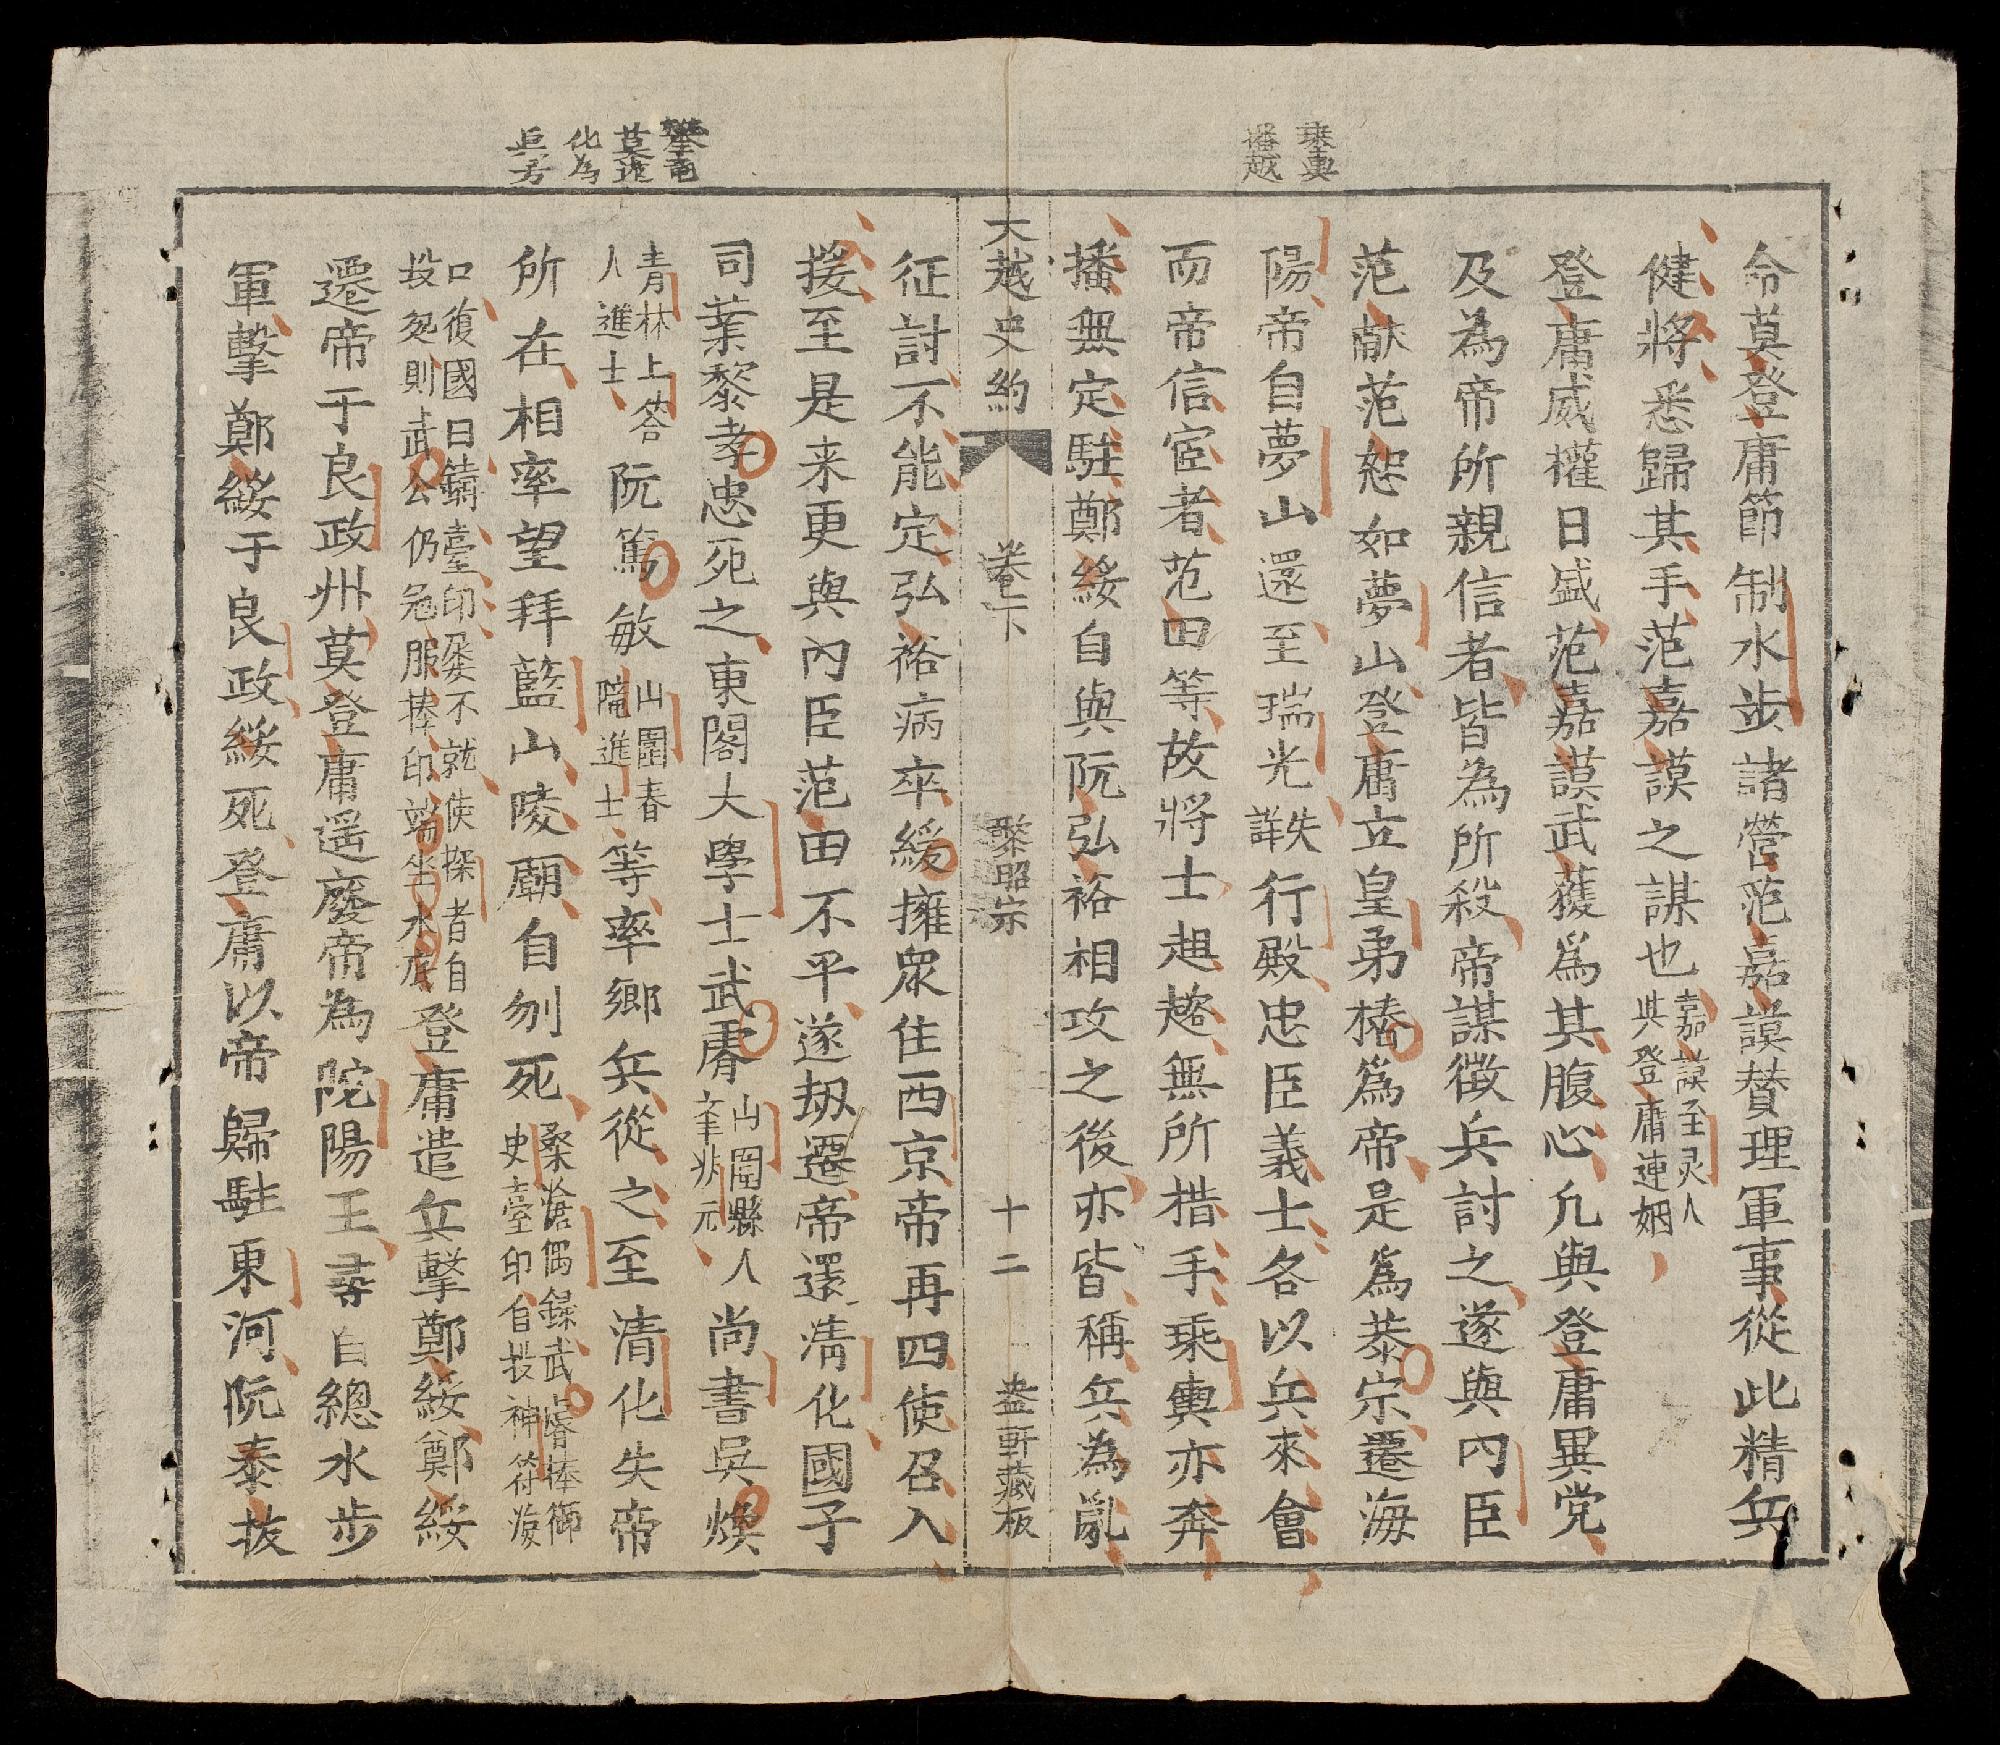 乘輿
播越
令莫登庸節制水步諸營范嘉謨賛理軍事從此精兵
健將悉歸其手范嘉謨之謀也嘉謨至灵人
與登庸連姻
登庸威權日盛范嘉謨武護為其腹心凢與登庸異党
及為帝所親信者皆為所殺帝謀徵兵討之遂與內臣
范獻范恕如夢山登庸立皇弟椿為帝是為恭宗遷海
陽帝自夢山還至瑞光失
諱行殿忠臣義士各以兵來會
而帝信宦者范田等故將士趄趦無所措手乘輿亦奔
播無定駐鄭綏自與阮弘裕相攻之後亦皆稱兵為亂
大越史約 卷下 黎昭宗 十二 盎軒藏板
攀竜
莫遂
化為
征討不能定弘裕病卒綏擁眾住西京帝再四使召入
援至是来更與內臣范田不平遂刼遷帝還淸化國子
司業黎孝忠死之東閣大學士武睿山圍縣人
尚書吳煥
青林上答
人進士阮篤敏山圍春
進士等率鄉兵從之至清化失帝
所在相率望拜藍山陵廟自刎死桑滄偶錄武睿捧御
史臺印自投神符後
口復國日鑄臺印屡不就使探者自
投忽則武公仍冠服捧印端坐水底登庸遣兵擊鄭綏鄭綏
遷帝于良政州莫登庸遥廢帝為陀陽王尋自總水步
軍擊鄭綏于良政綏死登庸以帝歸駐東河阮泰拔